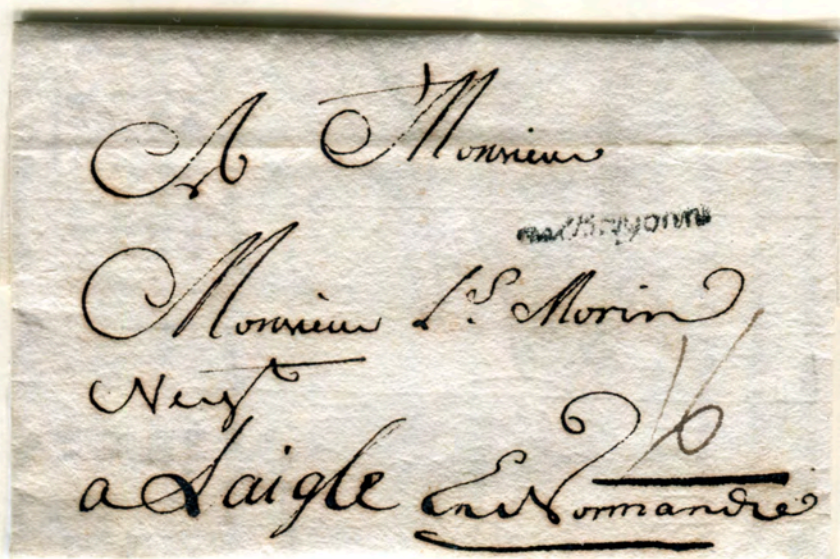 A Monsieur
de Bayonne
Monsieur Ls. Morin
Negt
16
a Laigle En Normandie